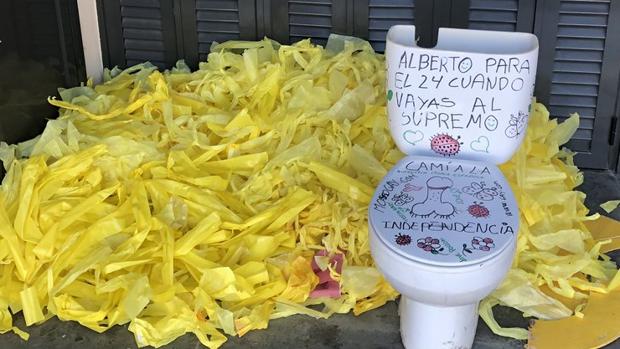 ALBERTO PARA
EL 24 CUANDO
VAYAS AL
SUPREMO
CAMÍ A LA
INDEPENDENCIA